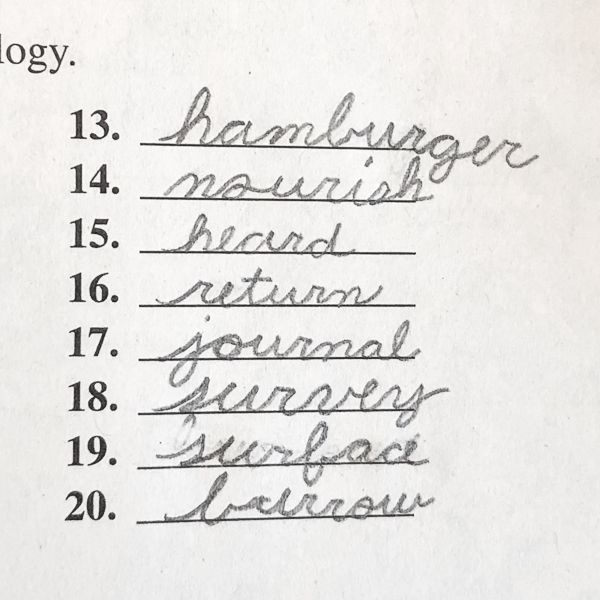 logy.
13. hamburger
14. nourish
15. heard
16. return
17. journal
18. survey
19. surface
20. burrow